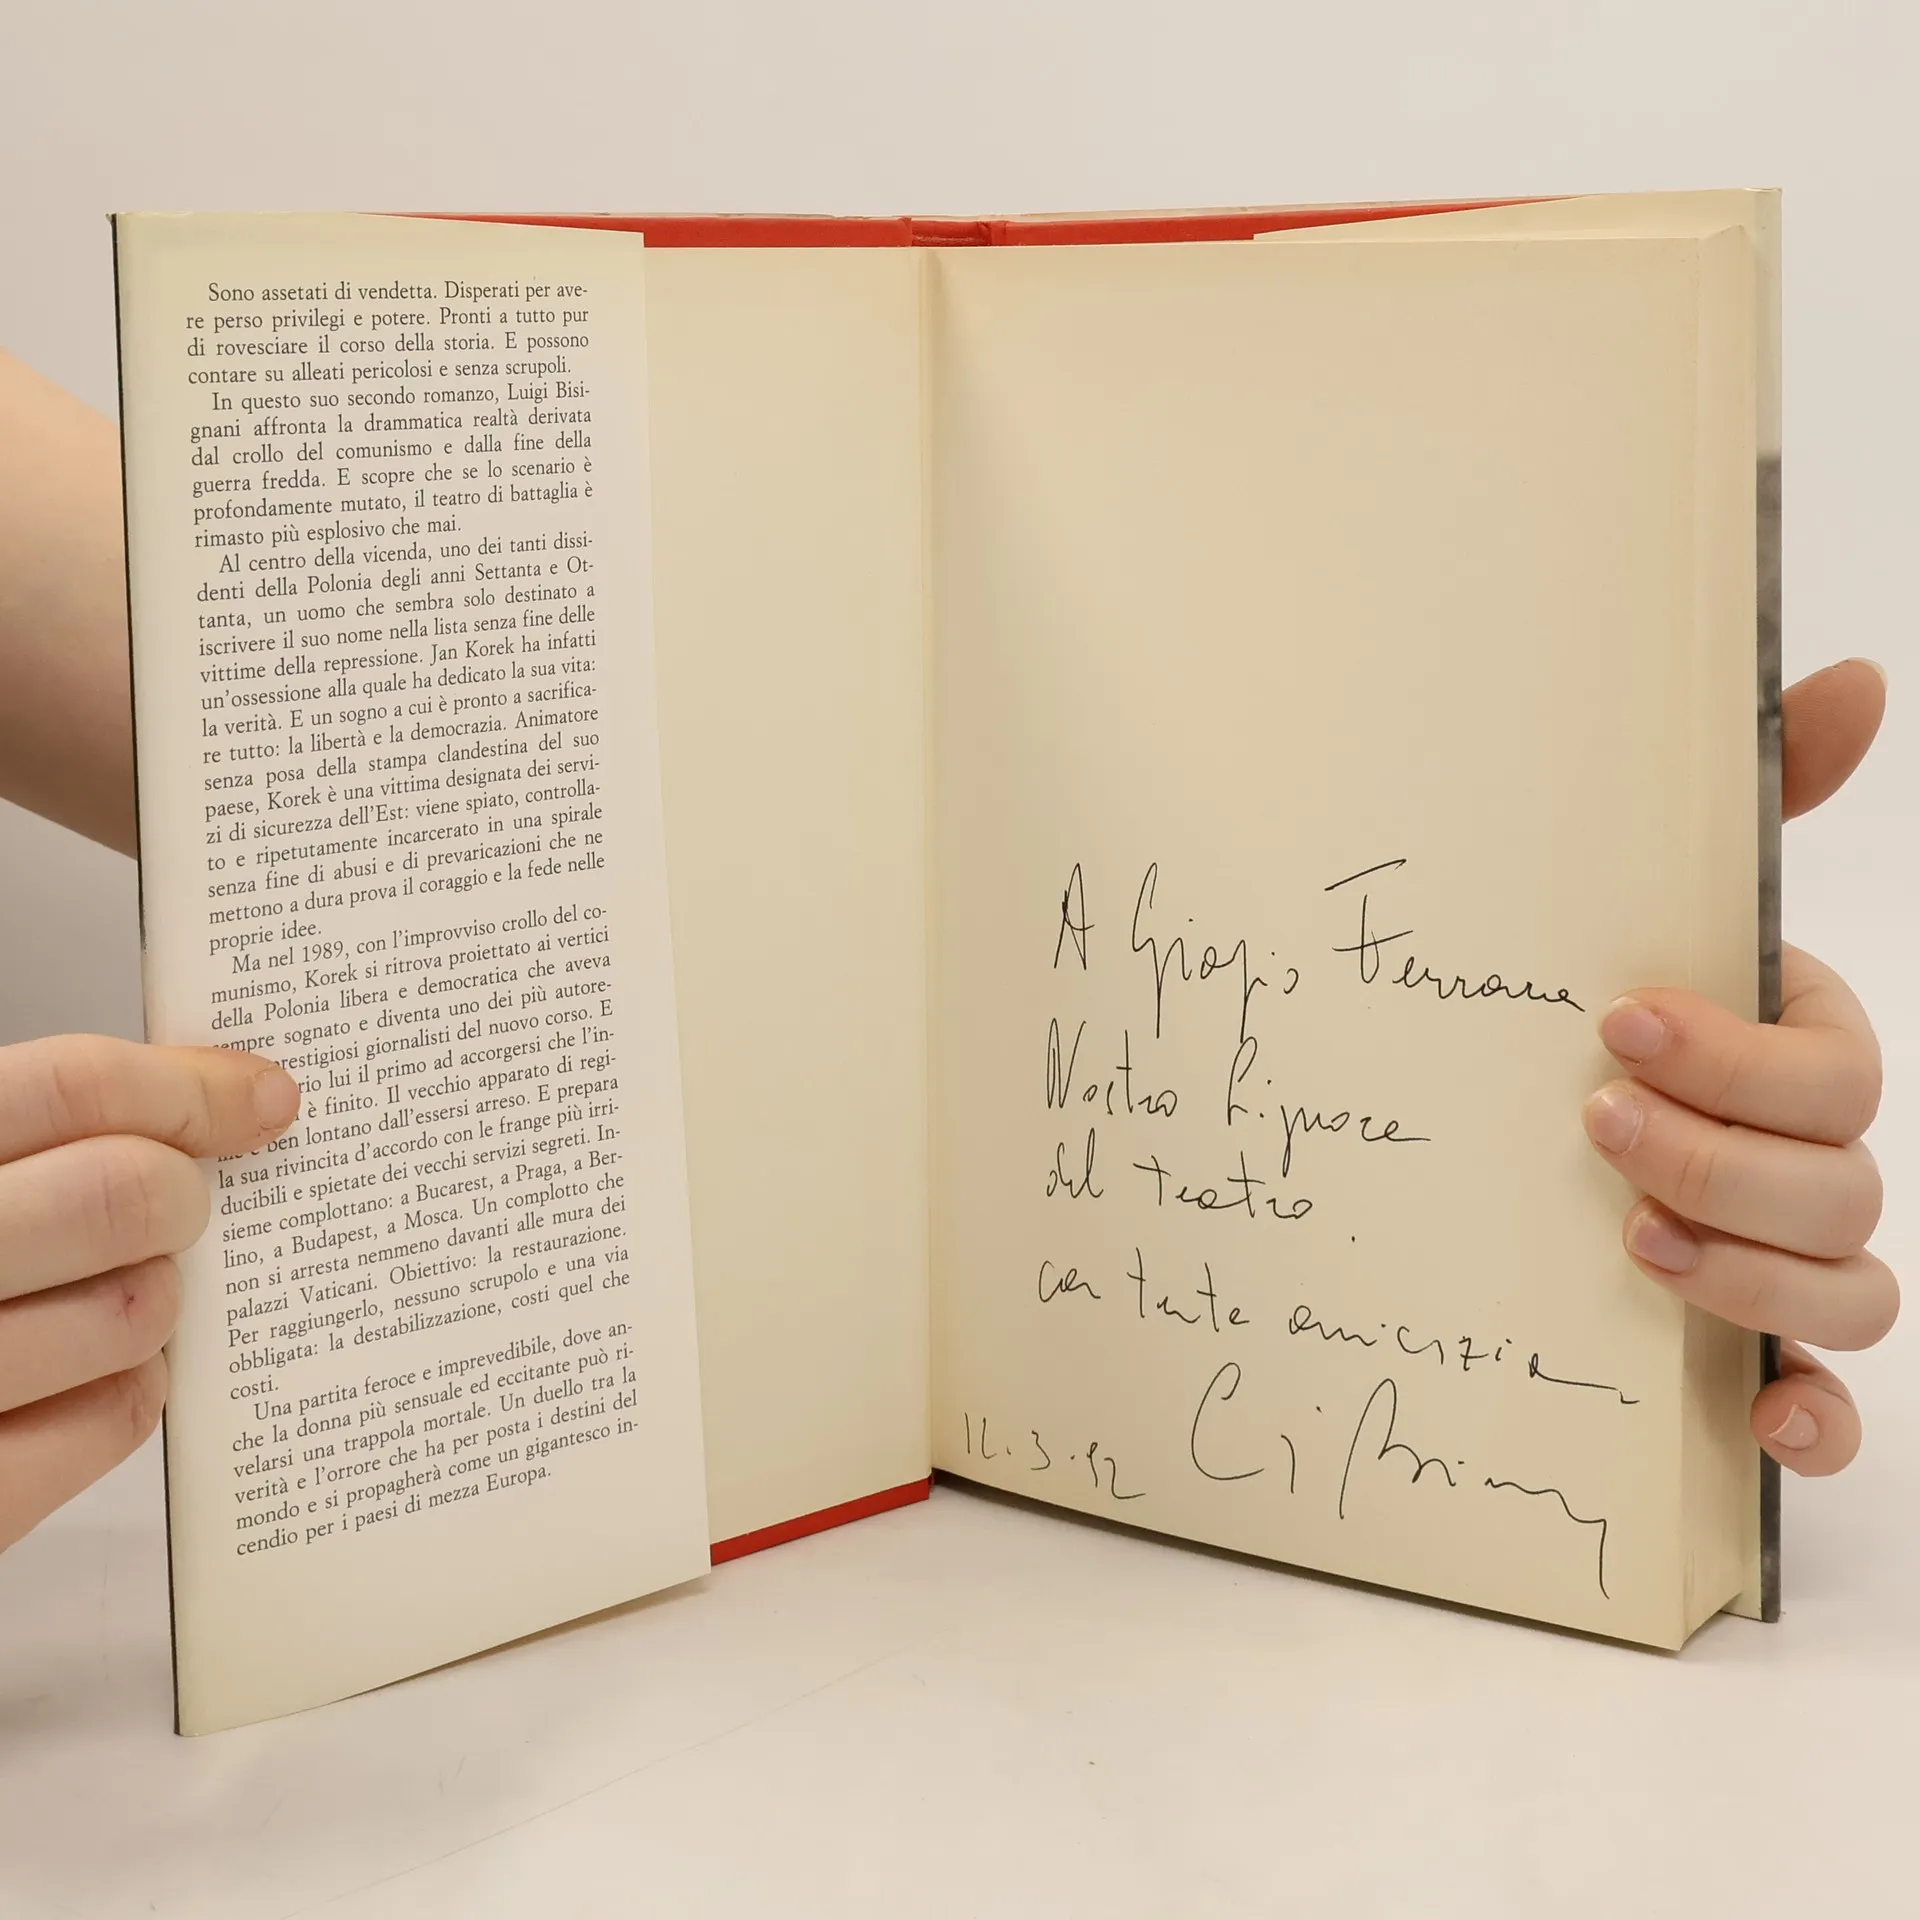 Sono assetati di vendetta. Disperati per ave-
re perso privilegi e potere. Pronti a tutto pur
di rovesciare il corso della storia. E possono
contare su alleati pericolosi e senza scrupoli.
In questo suo secondo romanzo, Luigi Bisi-
gnani affronta la drammatica realtà derivata
dal crollo del comunismo e dalla fine della
guerra fredda. E scopre che se lo scenario è
profondamente mutato, il teatro di battaglia è
rimasto più esplosivo che mai.
Al centro della vicenda, uno dei tanti dissi-
denti della Polonia degli anni Settanta e Ot-
tanta, un uomo che sembra solo destinato a
iscrivere il suo nome nella lista senza fine delle
vittime della repressione. Jan Korek ha infatti
un'ossessione alla quale ha dedicato la sua vita:
la verità. E un sogno a cui è pronto a sacrifica-
re tutto: la libertà e la democrazia. Animatore
senza posa della stampa clandestina del suo
paese, Korek è una vittima designata dei servi-
zi di sicurezza dell'Est: viene spiato, controlla-
to e ripetutamente incarcerato in una spirale
senza fine di abusi e di prevaricazioni che ne
mettono a dura prova il coraggio e la fede nelle
proprie idee.
Ma nel 1989, con l'improvviso crollo del co-
munismo, Korek si ritrova proiettato ai vertici
della Polonia libera e democratica che aveva
sempre sognato e diventa uno dei più autore-
prestigiosi giornalisti del nuovo corso. E
rio lui il primo ad accorgersi che l'in-
è finito. Il vecchio apparato di regi-
ben lontano dall'essersi arreso. E prepara
la sua rivincita d'accordo con le frange più irri-
ducibili e spietate dei vecchi servizi segreti. In-
sieme complottano: a Bucarest, a Praga, a Ber-
lino, a Budapest, a Mosca. Un complotto che
non si arresta nemmeno davanti alle mura dei
palazzi Vaticani. Obiettivo: la restaurazione.
Per raggiungerlo, nessuno scrupolo e una via
obbligata: la destabilizzazione, costi quel che
costi.
Una partita feroce e imprevedibile, dove an-
che la donna più sensuale ed eccitante può ri-
velarsi una trappola mortale. Un duello tra la
verità e l'orrore che ha per posta i destini del
mondo e si propagherà come un gigantesco in-
cendio per i paesi di mezza Europa.
A Giorgio Ferrara
Nostro Signore
del teatro
con tanta amicizia
12.3.92